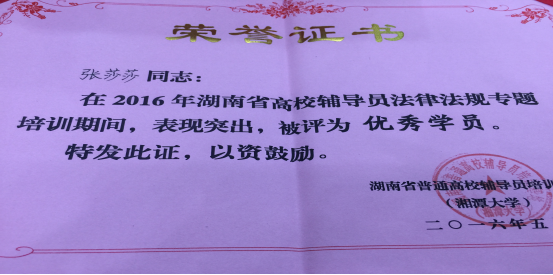 荣誉证书
张莎莎 同志：
在 2016 年湖南省高校辅导员法律法规专题
培训期间，表现突出，被评为 优秀学员。
特发此证，以资鼓励。
湖南省普通高校辅导员培训
（湘潭大学）
二〇一六年五